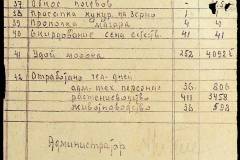 37 Обнос посевов
38 Прополка кукур. на зерно
39 Прополка 4 4
40 Скирдование сена естеств. 41 41
41 Удой молока 252 4092
42 Отработано чел-дней
адм-тех персонал 36 806
растениеводство 411 3458
животноводство 36 598
Администратор